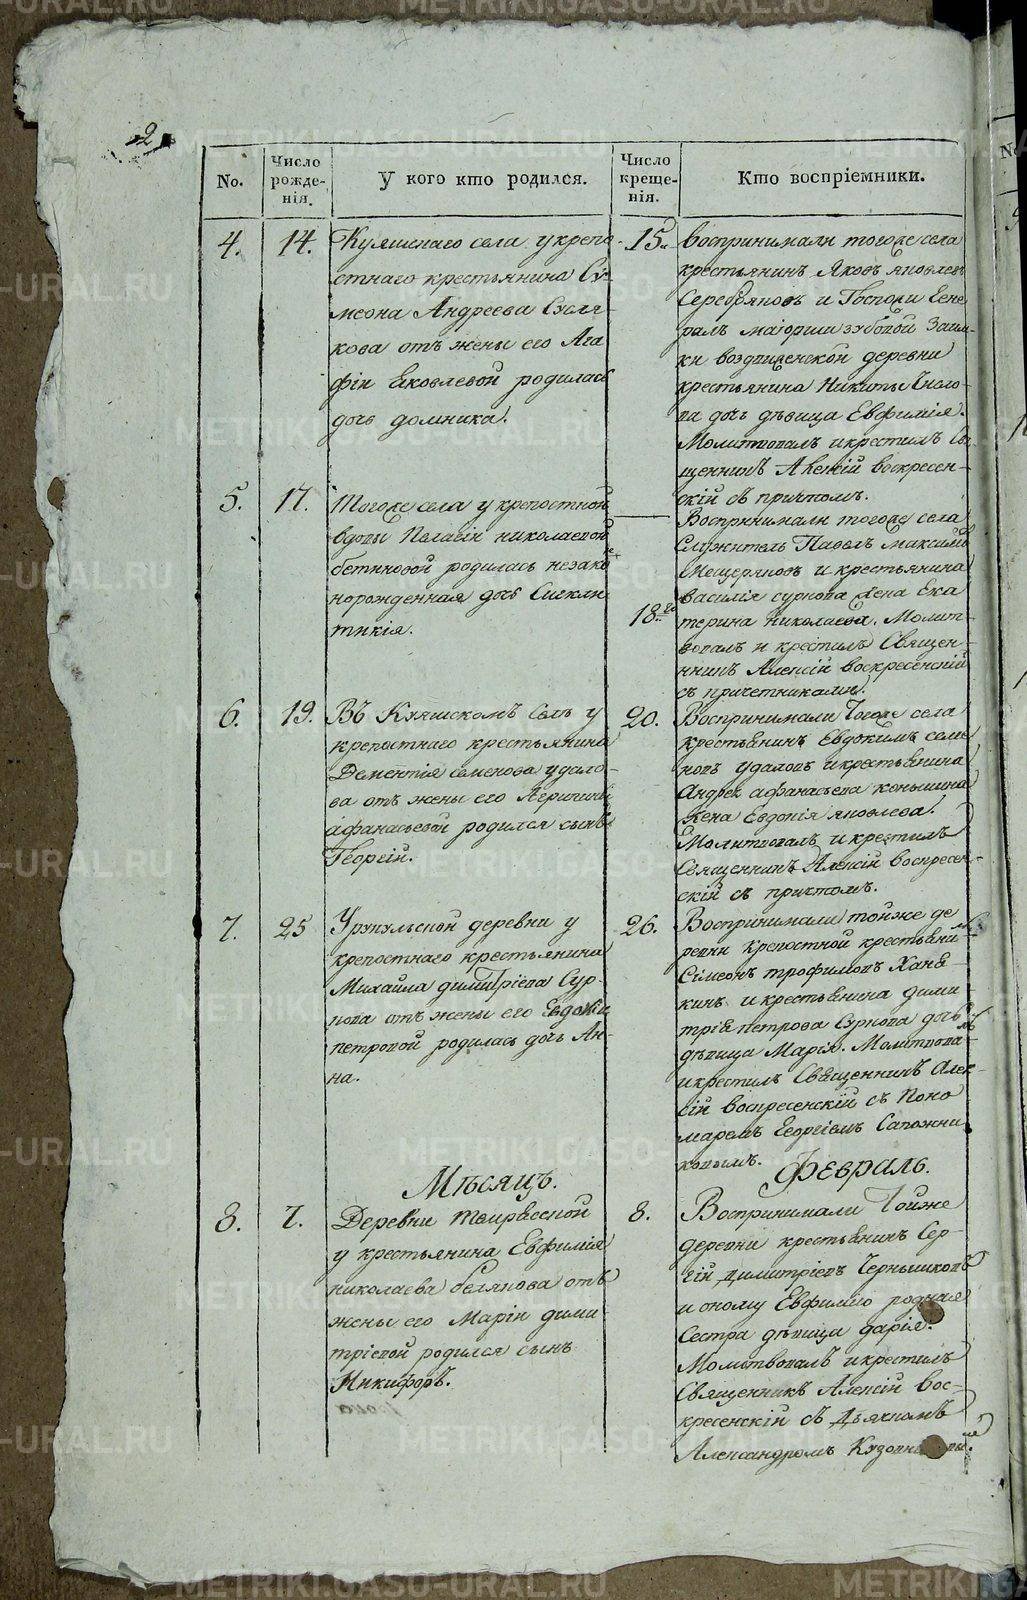 2
No.
Число рожде-нія.
У кого кто родился.
Число креще-нія.
Кто воспріемники.
4.
14.
Куяшскаго села у крепо-
стнаго крестьянина Си-
меона Андреева Сусля-
кова отъ жены его Ага-
фіи Яковлевой родилась
дочь домника.
15.
воспринимали тогоже села
крестьянинъ Яковъ яковлевъ
Серебряковъ и Госпожи Гене-
ралъ маіорши зубовой Заим-
ки воздвиженской деревни
крестьянина Никиты
дочь дѣвица Евфимія.
Молитвовалъ и крестилъ Свя-
щенникъ Алексій воскресен-
скій съ причтомъ.
5.
17.
Тогоже села у крепостной
вдовы Пелагіи николаевой
родилась незако
норожденная дочь Сиклі-
тикія.
18.го
Воспринимали тогоже села
Служитель Павелъ Максимовъ
Мещеряковъ и крестьянина
василія суркова жена Ека
терина николаева. Молит-
вовалъ и крестилъ Священ-
никъ Алексій воскресенскій
съ причетниками.
6.
19.
Въ Куяшскомъ Селѣ у
крепостнаго крестьянина
Дементія семенова удало-
ва отъ жены его
афанасьевой родился сынъ
Георгій.
20.
Воспринимали Тогоже села
крестьянинъ Евдокимъ семе
новъ удаловъ и крестьянина
Андрея афанасьева коньшина
жена Евдокія яковлева.
Молитвовалъ и крестилъ
Священникъ Алексій воскресен-
скій съ причтомъ.
7.
25
Урукульской деревни у
крепостнаго крестьянина
Михайла димитріева Сур-
кова отъ жены его Евдокіи
петровой родилась дочь Ан-
на.
26.
Воспринимали тойже де
ревни крепостной крестьяни-
Сімеонъ трофимовъ Ханя-
кинъ и крестьянина дими
трія петрова Суркова дочь
дѣвица Марія. Молитвова-
и крестилъ Священникъ Алек-
сій воспресенскій съ Поно
маремъ Георгіемъ Сапожни
ковымъ.
Мѣсяцъ.
Февраль.
8.
7.
Деревни
у крестьянина Евфимія
николаева белякова отъ
жены его Маріи дими
тріевой родился сынъ
Никифоръ.
8.
Воспринимали Тойже
деревни крестьянинъ Сер-
гій димитріевъ Чернышковъ
и оному Евфимію родная
Сестра дѣвица дарія.
Молитвовалъ и крестилъ
Священникъ Алексій Вос-
кресенскій съ Дьякономъ
Александромъ
METRIKI.GASO-URAL.RU